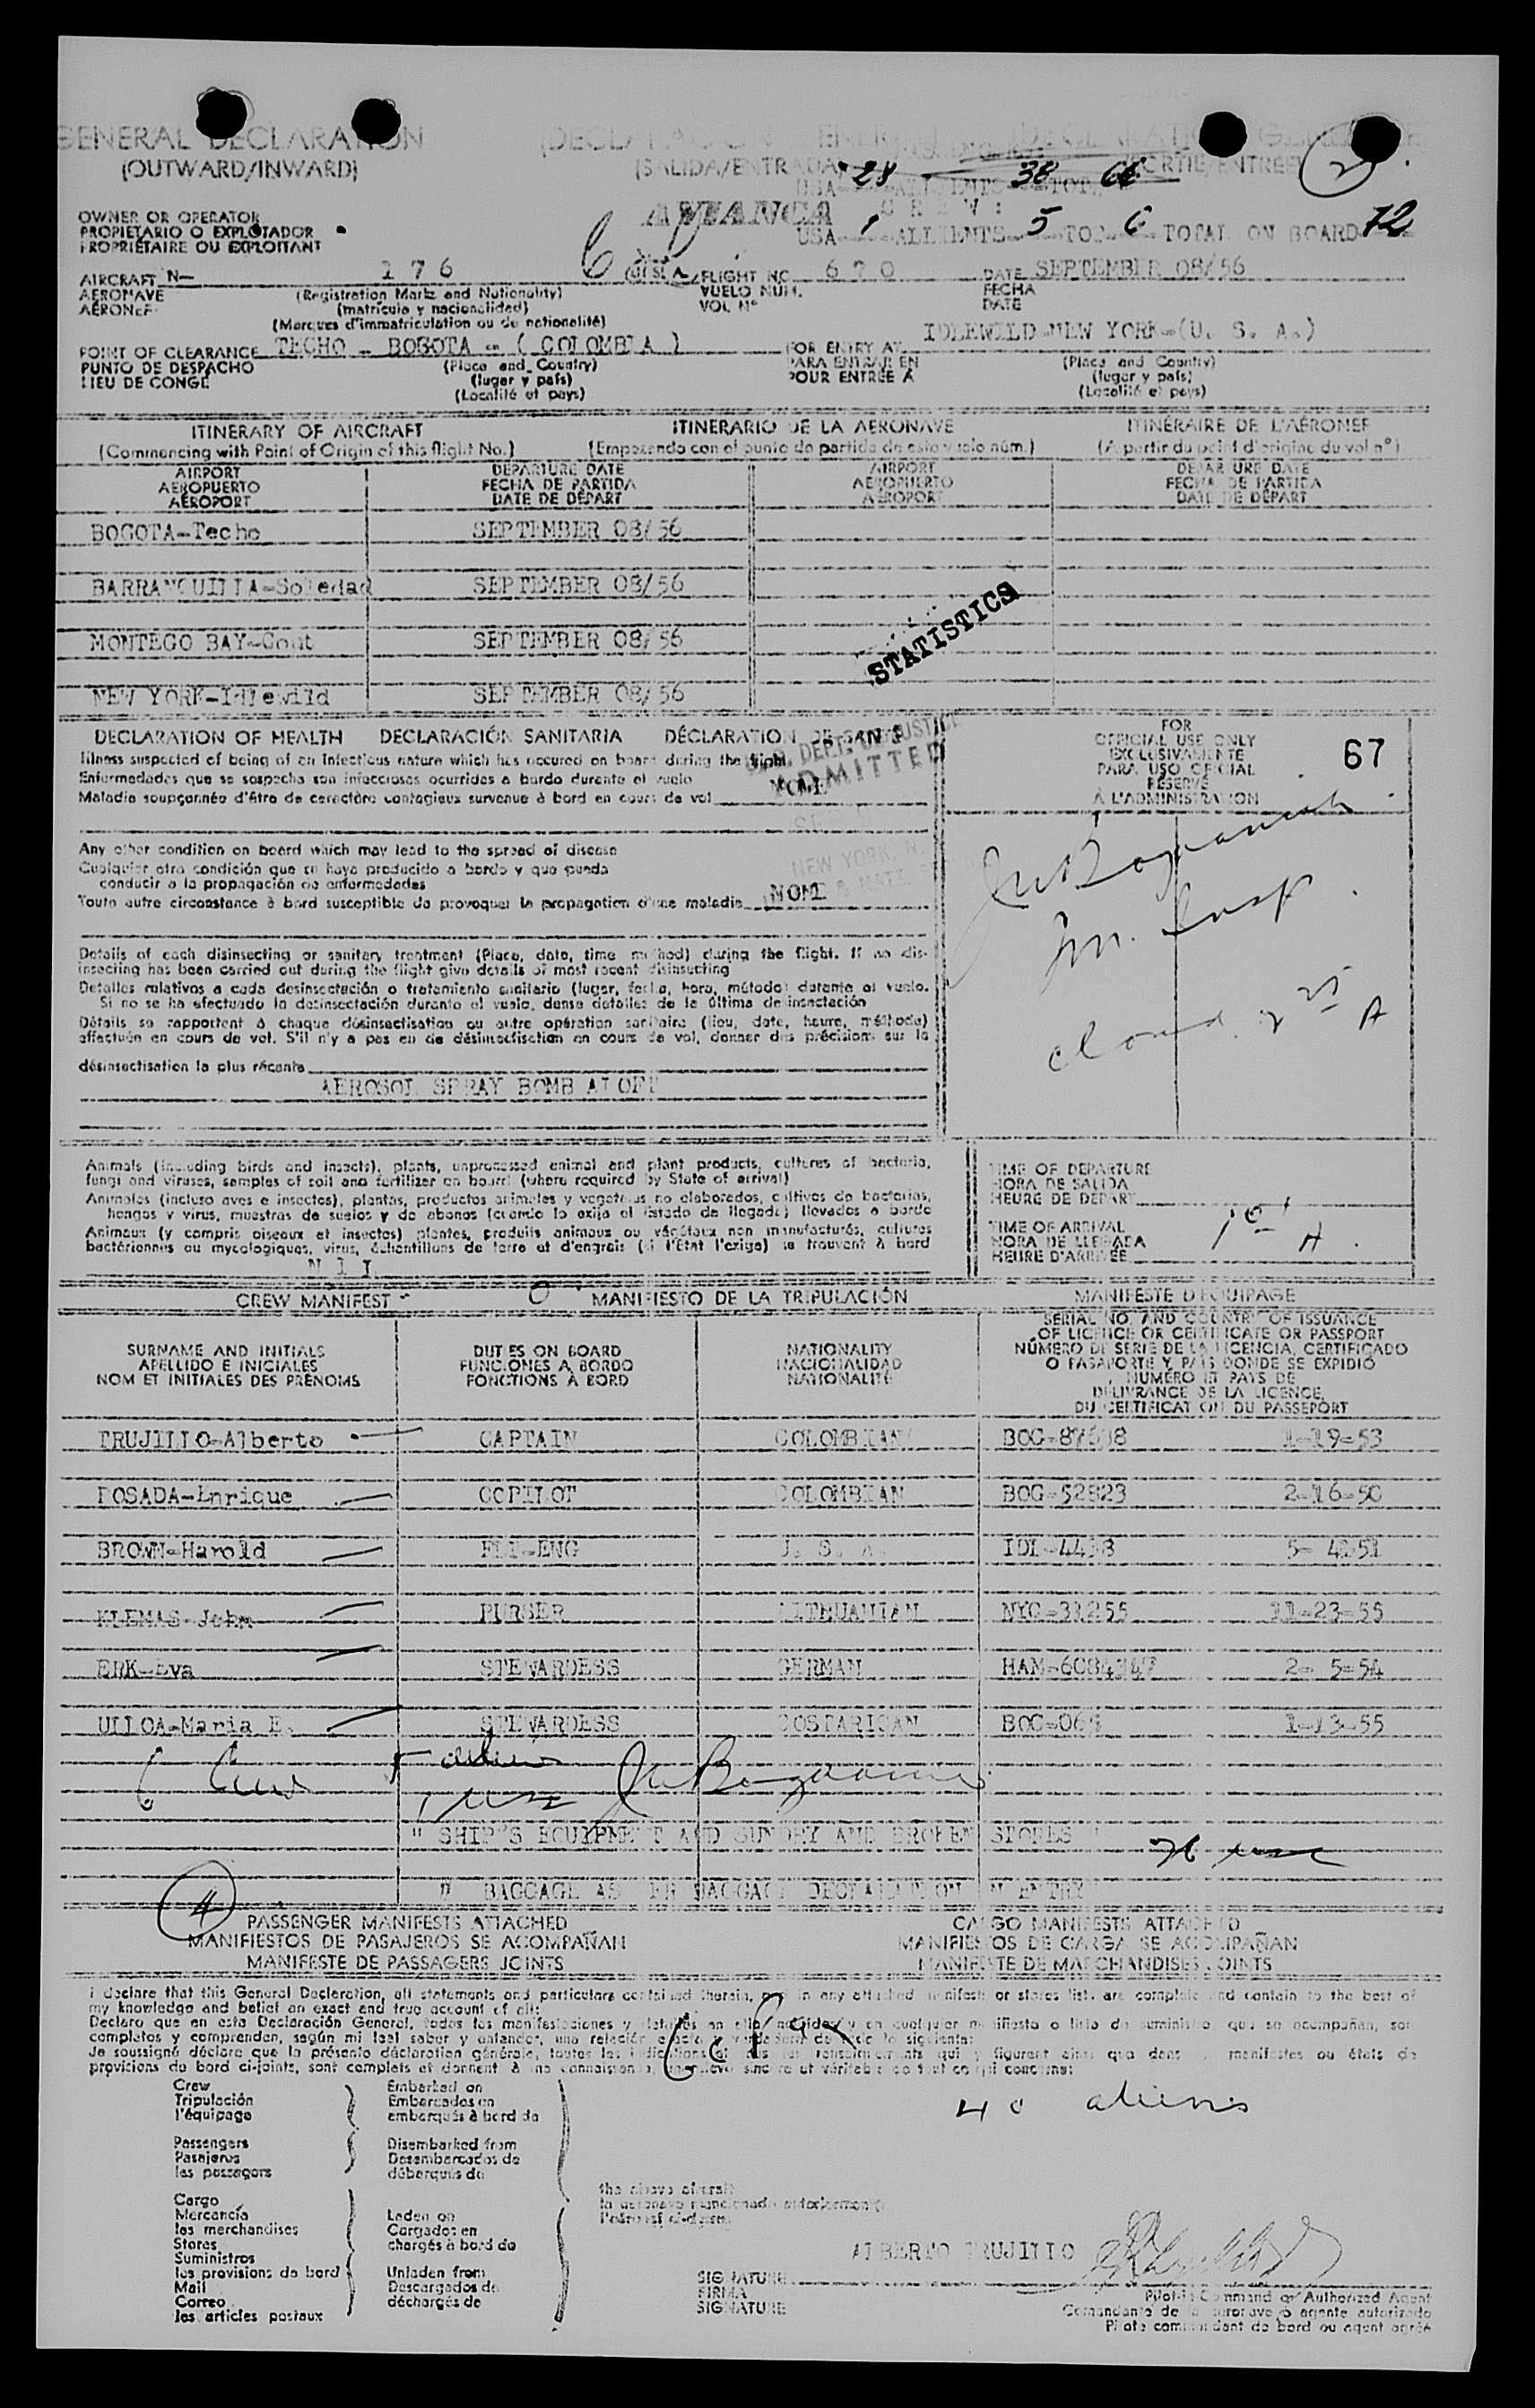 GENERAL DECLARATION
(OUTWARD/INWARD)
(SALIDA/ENTRADA
28 38 66
2
OWNER OR OPERATOR
PROPIETARIO O EXPLOTADOR
PROPRIÉTAIRE OU EXPLOITANT
AVIANCA
CREW:
USA 1 ALLIENTS 5 TOT 6 TOTAL ON BOARD 72
AIRCRAFT N— 176 FLIGHT NO. 670 DATE SEPTEMBER 08/56
AERONAVE (Registration Marks and Nationality) VUELO NUM. FECHA
AÉRONEF (matrícula y nacionalidad) VOL N° DATE
(Marques d'immatriculation ou de nationalité)
IDLEWILD-NEW YORK-(U. S. A.)
POINT OF CLEARANCE TECHO - BOGOTA - ( COLOMBIA ) FOR ENTRY AT
PUNTO DE DESPACHO (Place and Country) PARA ENTRAR EN (Place and Country)
LIEU DE CONGÉ (lugar y país) POUR ENTRÉE À (lugar y país)
(Localité et pays) (Localité et pays)
ITINERARY OF AIRCRAFT ITINERARIO DE LA AERONAVE ITINÉRAIRE DE L'AÉRONEF
(Commencing with Point of Origin of this flight No.) (Empezando con el punto de partida de este vuelo núm.) (A partir du point d'origine du vol n°)
AIRPORT DEPARTURE DATE AIRPORT DEPARTURE DATE
AEROPUERTO FECHA DE PARTIDA AEROPUERTO FECHA DE PARTIDA
AÉROPORT DATE DE DÉPART AÉROPORT DATE DE DÉPART
BOGOTA-Techo SEPTEMBER 08/56
BARRANQUILLA-Soledad SEPTEMBER 08/56
MONTEGO BAY- SEPTEMBER 08/56
STATISTICS
NEW YORK-Idlewild SEPTEMBER 08/56
DECLARATION OF HEALTH DECLARACIÓN SANITARIA DÉCLARATION DE SANTÉ
DEPT. OF JUSTICE
ADMITTED
Illness suspected of being of an infectious nature which has occured on board during the flight
Enfermedades que se sospecha son infecciosas ocurridas a bordo durante el vuelo
Maladie soupçonnée d'être de caractère contagieux survenue à bord en cours de vol NONE
FOR
OFFICIAL USE ONLY
EXCLUSIVAMENTE
PARA USO OFICIAL
RÉSERVÉ
À L'ADMINISTRATION
67
Any other condition on board which may lead to the spread of disease
Cualquier otra condición que se haya producido a bordo y que pueda
conducir a la propagación de enfermedades
Toute autre circonstance à bord susceptible de provoquer la propagation d'une maladie NONE
NEW YORK, N.
Details of each disinsecting or sanitary treatment (Place, date, time method) during the flight. If no dis-
insecting has been carried out during the flight give details of most recent disinsecting
Detalles relativos a cada desinsectación o tratamiento sanitario (lugar, fecha, hora, método) durante el vuelo.
Si no se ha efectuado la desinsectación durante el vuelo, dense detalles de la última desinsectación
Détails se rapportent à chaque désinsectisation ou autre opération sanitaire (lieu, date, heure, méthode)
effectuée en cours de vol. S'il n'y a pas eu de désinsectisation en cours de vol, donner des précisions sur la
désinsectisation la plus récente
AEROSOL SPRAY BOMB ALOFT
Im. Insp.
2 25 A
Animals (including birds and insects), plants, unprocessed animal and plant products, cultures of bacteria,
fungi and viruses, samples of soil and fertilizer on board (where required by State of arrival)
Animales (incluso aves e insectos), plantas, productos animales y vegetales no elaborados, cultivos de bacterias,
hongos y virus, muestras de suelos y de abonos (cuando lo exija el Estado de llegada) llevados a bordo
Animaux (y compris oiseaux et insectes) plantes, produits animaux ou végétaux non manufacturés, cultures
bactériennes ou mycologiques, virus, échantillons de terre et d'engrais (si l'État l'exige) se trouvent à bord
N I L
TIME OF DEPARTURE
HORA DE SALIDA
HEURE DE DEPART
TIME OF ARRIVAL
HORA DE LLEGADA
HEURE D'ARRIVÉE
CREW MANIFEST MANIFIESTO DE LA TRIPULACIÓN MANIFESTE D'EQUIPAGE
SURNAME AND INITIALS DUTIES ON BOARD NATIONALITY SERIAL NO. AND COUNTRY OF ISSUANCE
APELLIDO E INICIALES FUNCIONES A BORDO NACIONALIDAD OF LICENCE OR CERTIFICATE OR PASSPORT
NOM ET INITIALES DES PRÉNOMS FONCTIONS À BORD NATIONALITÉ NÚMERO DE SERIE DE LA LICENCIA, CERTIFICADO
O PASAPORTE Y PAIS DONDE SE EXPIDIÓ
NUMÉRO ET PAYS DE
DÉLIVRANCE DE LA LICENCE,
DU CERTIFICAT OU DU PASSEPORT
TRUJILLO-Alberto CAPTAIN COLOMBIAN 1-19-53
POSADA-Enrique COPILOT COLOMBIAN BOG-52823 2-16-50
BROWN-Harold FLI-ENG U. S. A. IDL-4438
KLEMAS-John PURSER LITHUANIAN NYC-31255 11-23-55
ERK-Eva STEWARDESS GERMAN 2- 5-54
ULLOA-Maria E. STEWARDESS COSTARICAN 1-13-55
6 Crew 5 aliens
1 USC
" SHIP'S EQUIPMENT AND SUNDRY AND BROKEN STORES "
26 usc
" BAGGAGE AS PER BAGGAGE DECLARATION ON ENTRY
4
PASSENGER MANIFESTS ATTACHED CARGO MANIFESTS ATTACHED
MANIFIESTOS DE PASAJEROS SE ACOMPAÑAN MANIFIESTOS DE CARGA SE ACOMPAÑAN
MANIFESTE DE PASSAGERS JOINTS MANIFESTE DE MARCHANDISES JOINTS
I declare that this General Declaration, all statements and particulars contained therein, and in any attached manifests or stores lists are complete and contain to the best of
my knowledge and belief an exact and true account of all:
Declaro que en esta Declaración General, todas las manifestaciones y detalles en ella contenidos y en cualquier manifiesto o lista de suministros que se acompañan, son
completos y comprenden, según mi leal saber y entender, una relación exacta y verdadera de todo lo siguiente:
Je soussigné déclare que la présente déclaration générale, toutes les indications et tous les renseignements qui y figurent ainsi que dans les manifestes ou états de
provisions de bord ci-joints, sont complets et donnent à ma connaissance, un relevé sincère et véritable de tout ce qui concerne:
66 Pax
40 aliens
Crew Embarked on
Tripulación Embarcados en
l'équipage embarqués à bord de
Passengers Disembarked from
Pasajeros Desembarcados de
les passagers débarqués de
the above aircraft
la aeronave mencionada anteriormente
l'aéronef ci-dessus
Cargo
Mercancía Laden on
les marchandises Cargados en
Stores chargés à bord de
Suministros
les provisions de bord Unladen from
Mail Descargados de
Correo déchargés de
les articles postaux
ALBERTO TRUJILLO
SIGNATURE
FIRMA
SIGNATURE
Pilot-in-Command or Authorized Agent
Comandante de la aeronave o agente autorizado
Pilote commandant de bord ou agent agréé